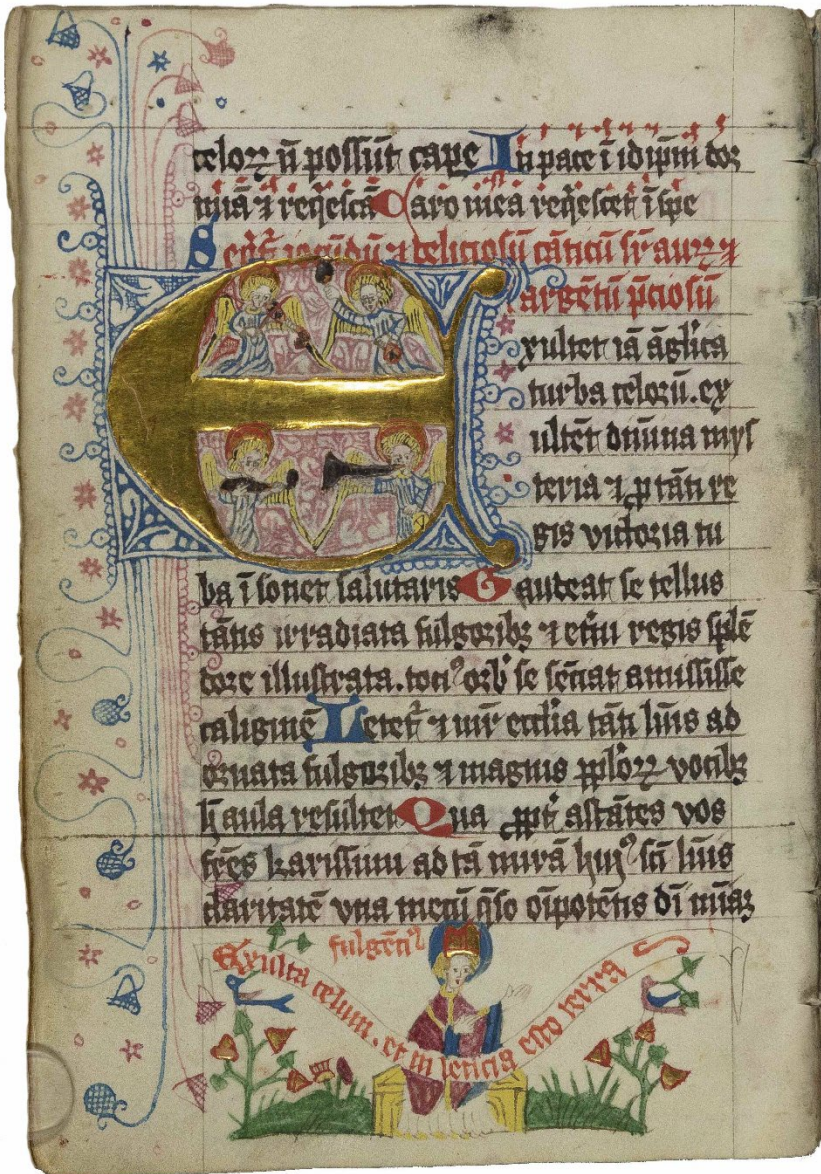 celoꝝ n̄ possūt cape In pace ī idipm̄ dor
miā ⁊ reqͥescā Caro mea reqͥescet ī spe
Seqͥt͛ iocūdū ⁊ deliciosū cāticū sr̄ auꝝ ⁊
argētū p̄ciosū
Exultet iā āglica
turba celoꝝ. ex
ultēt diuina mys
teria ⁊ ꝑ tāti re
gis victoria tu
ba ī sonet salutaris Gaudeat se tellus
tātis irradiata fulgoribꝫ ⁊ et̄ni regis splē
dore illustrata. toci⁹ orbͥ se sēciat amisisse
caliginē Letet͛ ⁊ mr̄ eccl̄ia tāti lūis ad
ornata fulgoribꝫ ⁊ magnis pp̄loꝝ vocibꝫ
h̄ aula resultet Qua ꝓpt̉ astātes vos
fr̄es karissimi ad tā mirā huj⁹ sc̄i lūis
claritatē vna mecū q̄so oīpotētis dī mīaꝫ
fulgēci⁹
Exulta celum. et in leticia esto terra